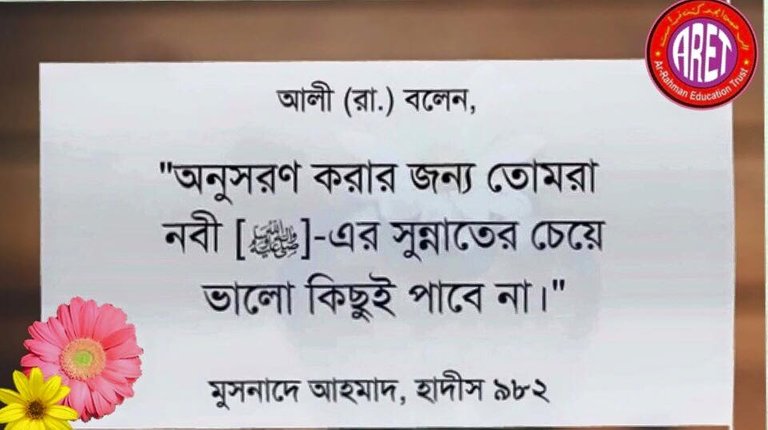 ARET
Ar-Rahman Education Trust
আলী (রা.) বলেন,
"অনুসরণ করার জন্য তোমরা
নবী [ﷺ]-এর সুন্নাতের চেয়ে
ভালো কিছুই পাবে না।"
মুসনাদে আহমাদ, হাদীস ৯৮২